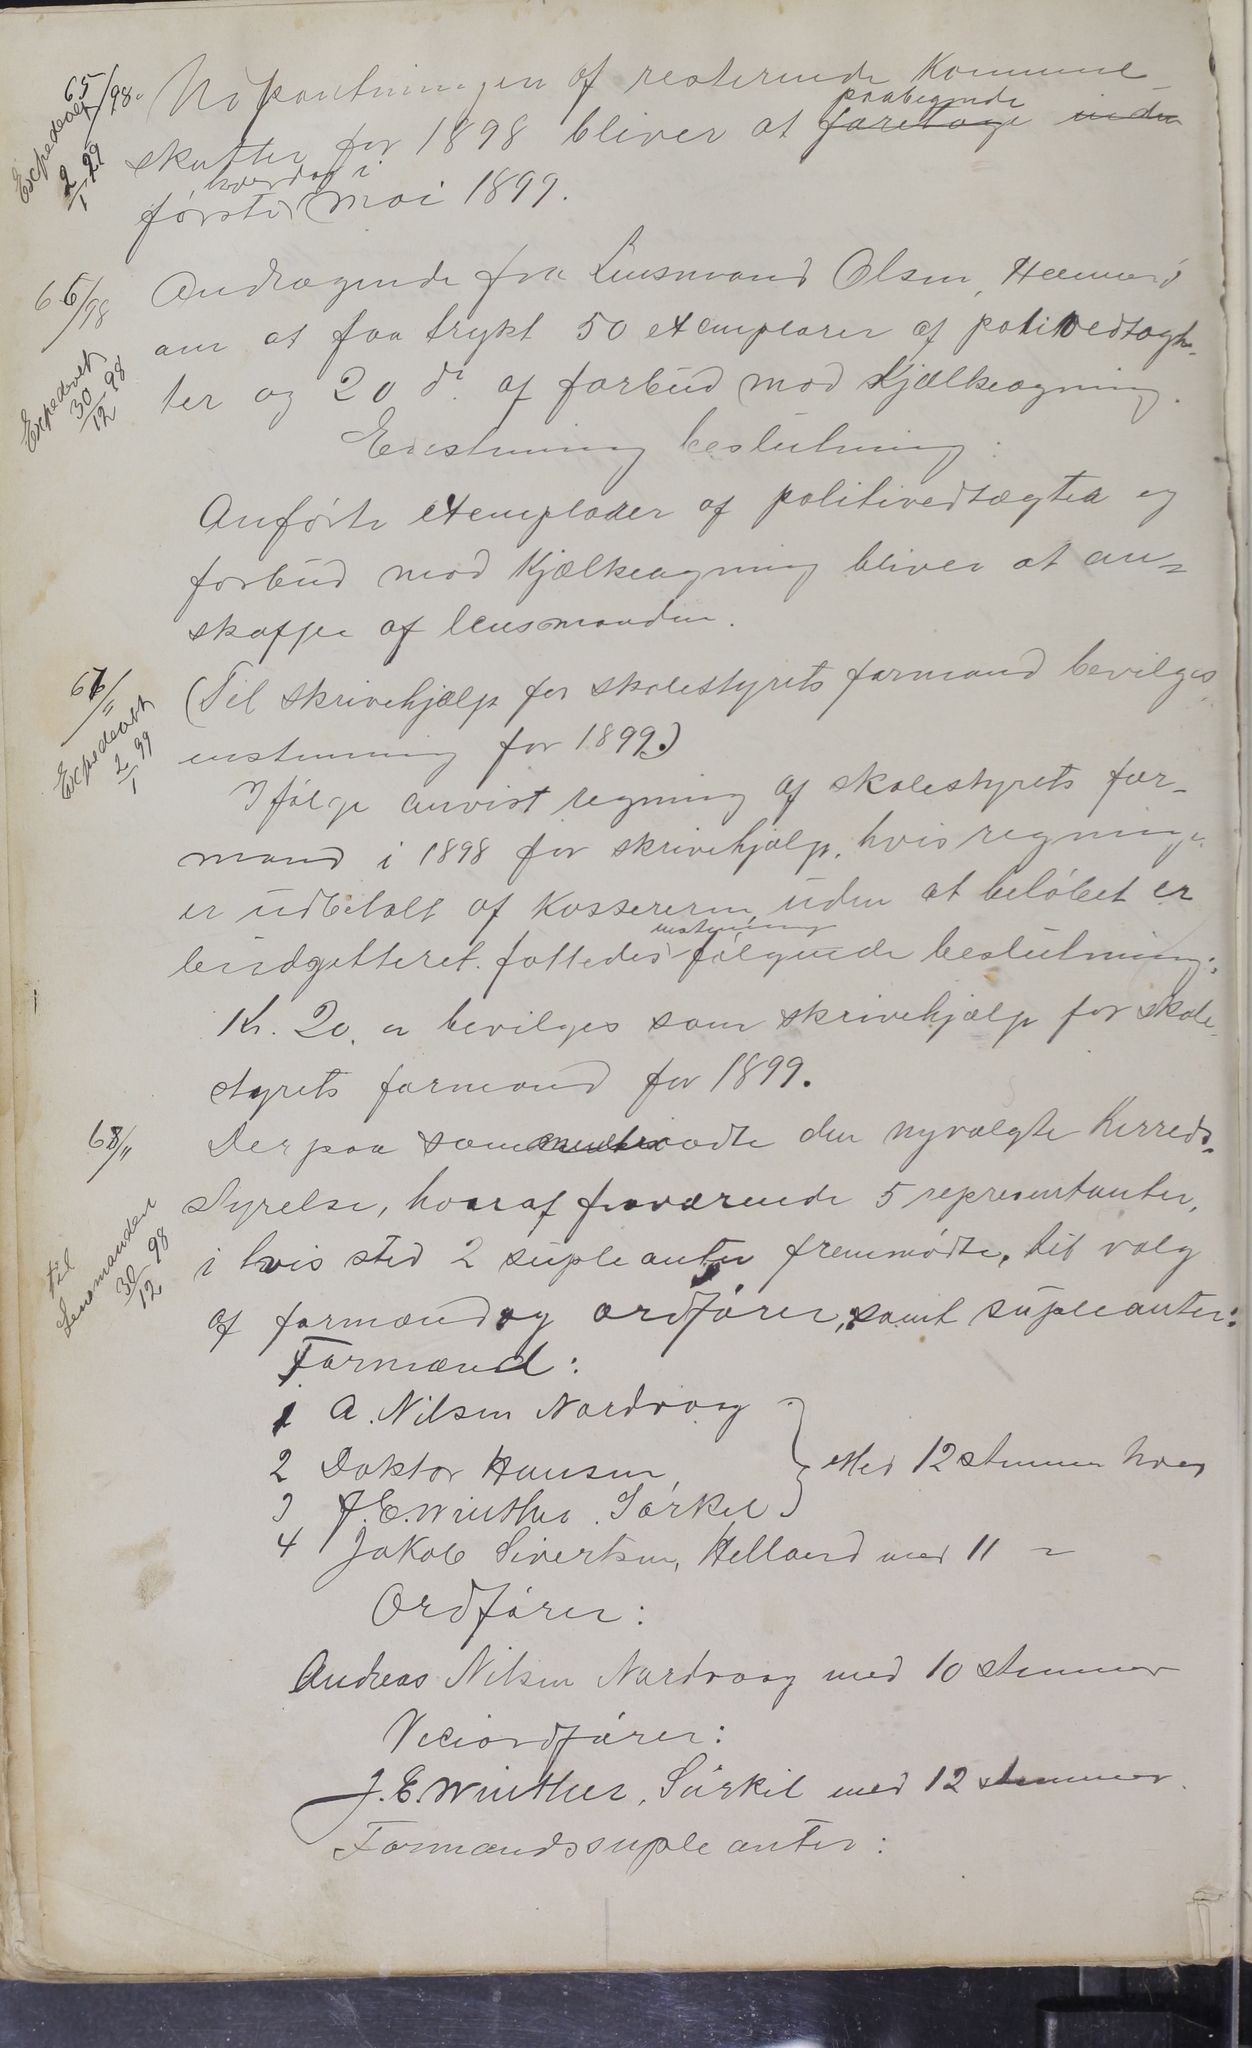 65/98.
Expederet
2/1 99
Udpantningen af resterende Kommune
paabegynde
skatter for 1898 bliver at foretage inden
hverdag i
første mai 1899.
66/98
Expederet
30/12 98
Andragende fra Lensmand Olsen,
om at faa trykt 50 exemplarer af politivedtægh-
ter og 20 do af forbud mod Kjælkeagning.
Enstemmig beslutning:
Anførte exemplarer af politivedtægter og
forbud mod Kjælkeagning bliver at an-
skaffe af lensmanden.
67/"
Expederet
2/1 99
(Til skrivehjælp for skolestyrets formand bevilges
enstemmig for 1899.)
Ifølge anvist regning af skolestyrets for-
mand i 1898 for skrivehjælp, hvis regning
er udbetalt af Kassereren uden at beløbet er
enstemmig
budgetteret. fattedes følgende beslutning:
Kr. 20, bevilges som skrivehjælp for skole-
styrets formand for 1899.
68/"
til
Lensmanden
30/12 98
Derpaa sammentraadte den nyvalgte Herreds-
styrelse, hvoraf fraværende 5 representanter,
i hvis sted 2 supleanter fremmødte, til valg
af formænd og ordfører, samt supleanter:
Formænd:
1 A. Nilsen Nordvaag
2 Doktor Hansen, Med 12 stemmer hver
3 J.E. Winther. Sørkil
4 Jakob Sivertsen, Helland med 11 "
Ordfører:
Andreas Nilsen Nordvaag med 10 stemmer
Viceordfører:
J.E. Winther, Sørkil med 12 stemmer.
Formandssupleanter: